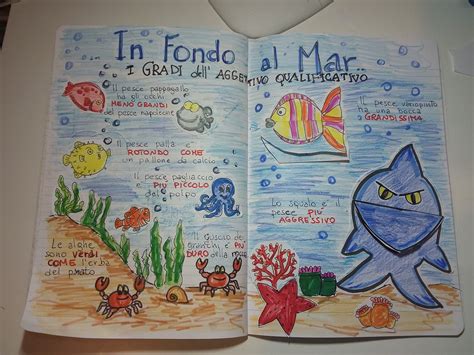 In Fondo al Mar..
I GRADI dell' AGGETTIVO QUALIFICATIVO
Il pesce pappagallo
ha gli occhi
MENO GRANDI
del pesce napoleone
Il pesce palla e'
ROTONDO COME
un pallone da calcio
Il pesce pagliaccio
e' PIU' PICCOLO
del polpo
Le alghe
sono VERDI
COME l'erba
del prato
Il guscio dei
granchi e' PIU'
DURO della
Il pesce
ha una bocca
GRANDISSIMA
Lo squalo e' il
pesce PIU'
AGGRESSIVO